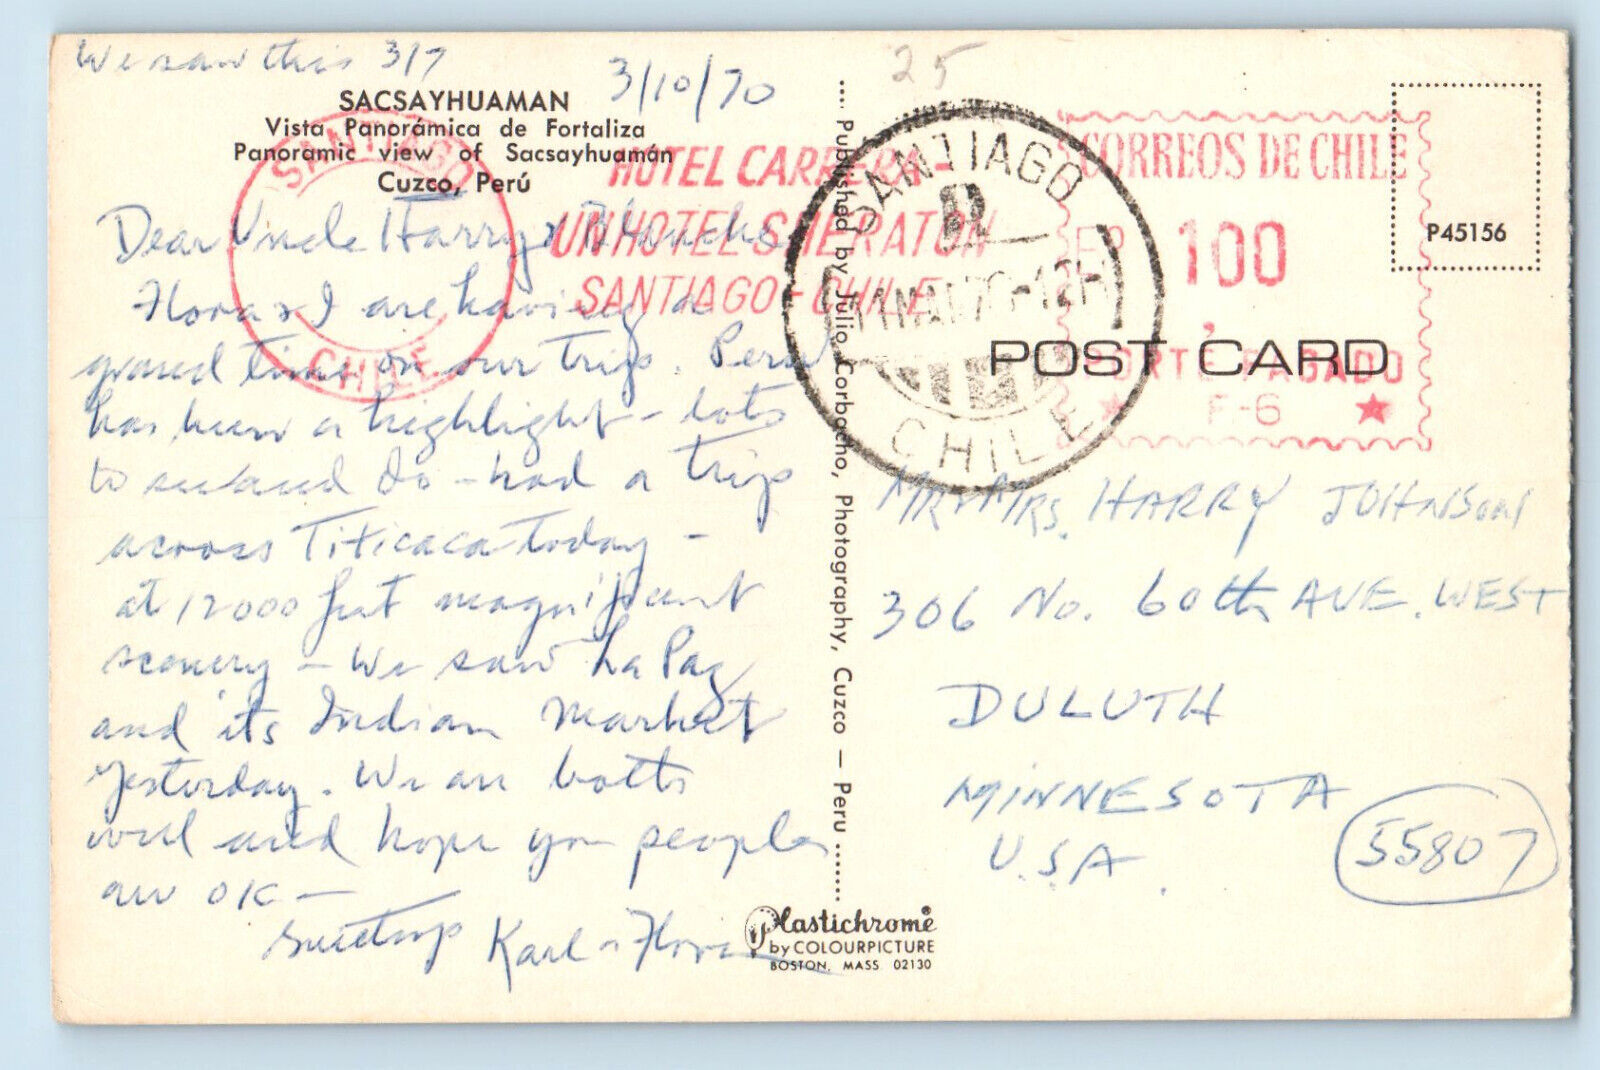 We saw this 3/7
3/10/70
25
SACSAYHUAMAN
Vista Panorámica de Fortaliza
Panoramic view of Sacsayhuamán
Cuzco, Perú
SANTIAGO
CHILE
HOTEL CARRERA-
UN HOTEL SHERATON
SANTIAGO-CHILE
SANTIAGO
CHILE
CORREOS DE CHILE
100
PORTE PAGADO
F-6
P45156
POST CARD
Dear Uncle Harry & Blanche
Flora & I are having a
grand time on our trip. Peru
has been a highlight - lots
to see and do - had a trip
across Titicaca today -
at 12000 feet magnificent
scenery - We saw La Paz
and its Indian Market
yesterday. We are both
well and hope you people
are OK -
Karl & Flora
Published by Julio Corbacho, Photography, Cuzco — Peru
Mr & Mrs. HARRY JOHNSON
306 No. 60th AVE. WEST
DULUTH
MINNESOTA
U.S.A.
55807
Plastichrome®
by COLOURPICTURE
BOSTON, MASS 02130